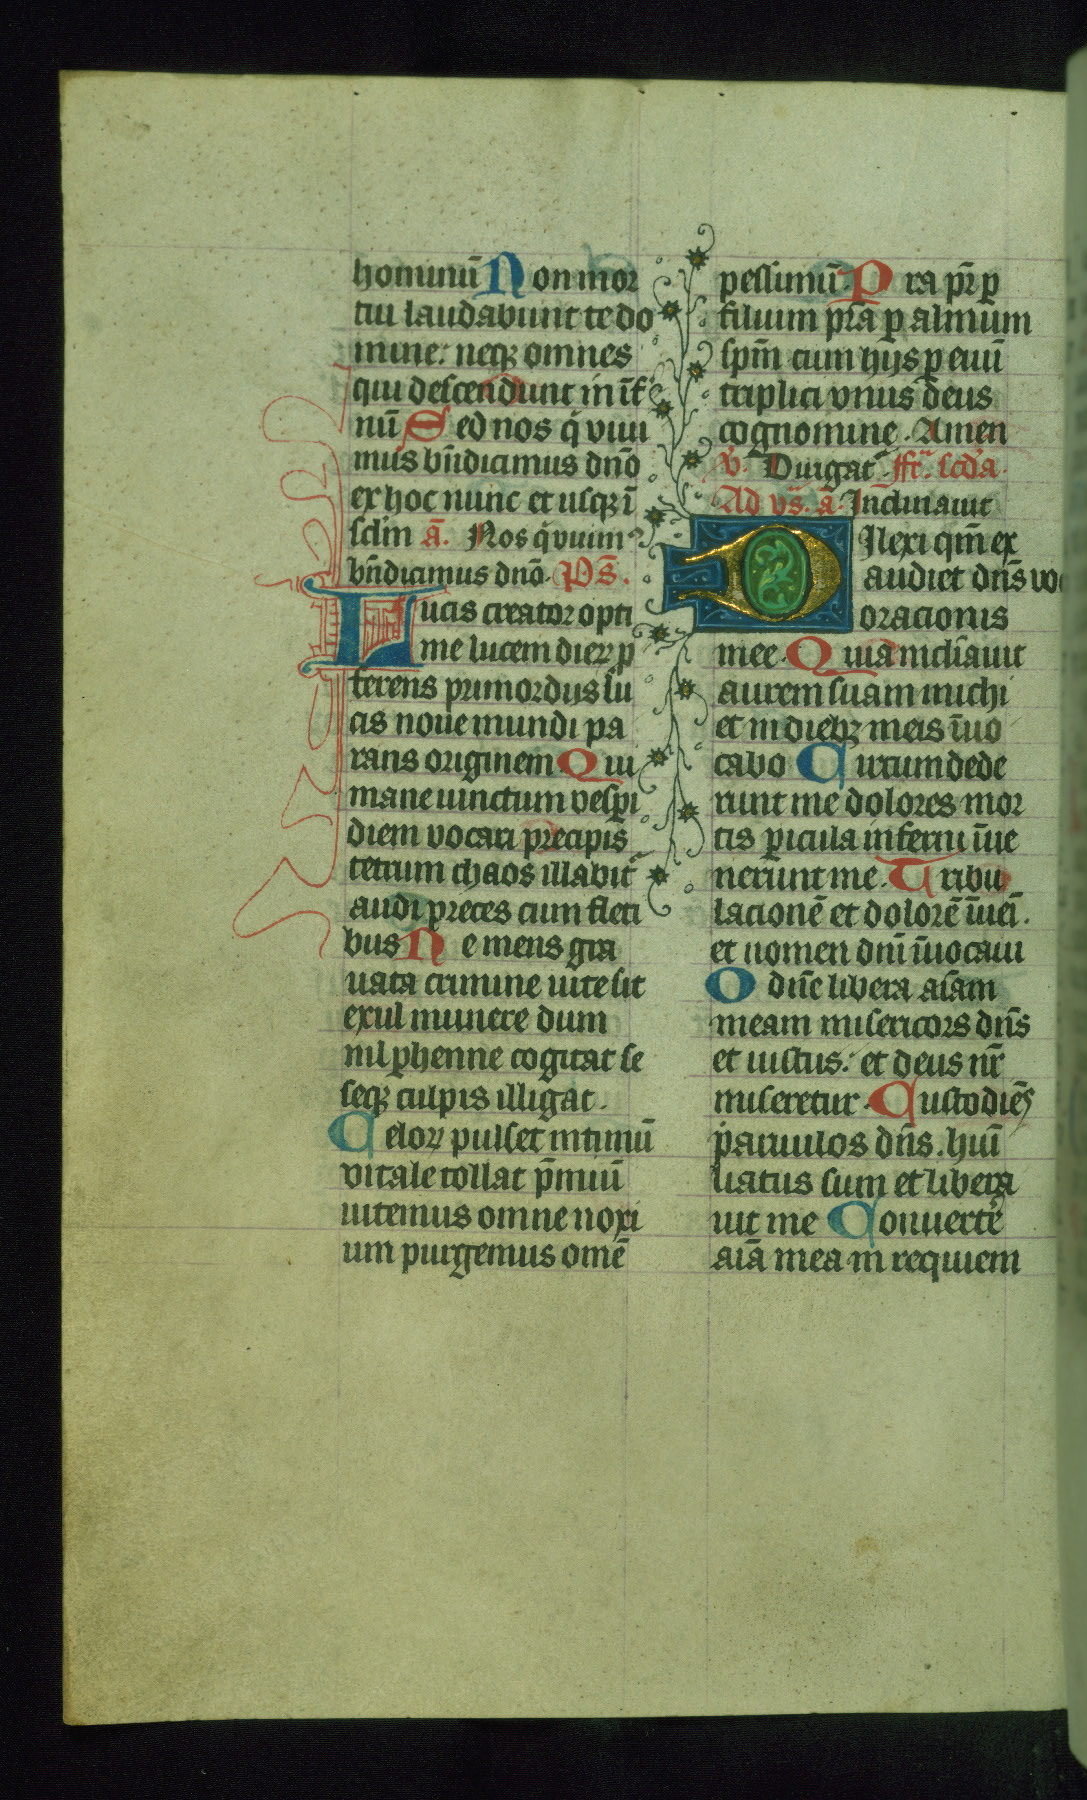 hominū Non mor
tui laudabunt te do
mine: neqꝫ omnes
qui descendunt in īf
nū Sed nos q̄ viui
mus bn̄dicimus dn̄o
ex hoc nunc et usqꝫ ī
sclm̄ a̅. Nos q̄ vuim᷒
bn̄dicimus dn̄o. Ps̄.
Lucis creator opti
me lucem dieꝝ ꝓ
ferens primordijs lu
cis noue mundi pa
rans originem Qui
mane iunctum vesp̄i
diem vocari precipis
tetrum chaos illabit᷑
audi preces cum fleti
bus Ne mens gra
uata crimine uite sit
exul munere dum
nil ꝑhenne cogitat se
seqꝫ culpis illigat.
Celoꝝ pulset intimū
vitale tollat p̄miū
uitemus omne noxi
um purgemus omē
pessimū. Pra pr̄ ꝑ
filium pr̄a ꝑ almum
spm̄ cum hijs ꝑ euū
triplici vnus deus
cognomine. Amen
v̄. Dirigat᷑. ffr̄. scd̄a.
Ad vs̄. a̅. Inclinauit
Dilexi qm̄ ex
audiet dn̄s vo
oracionis
mee. Quia incliauit
aurem suam michi
et in diebꝫ meis īuo
cabo Circumdede
runt me dolores mor
tis ꝑicula inferni īue
nerunt me. Tribu
lacionē et dolorē īuei.
et nomen dn̄i īuocaui
O dn̄e libera aīam
meam misericors dn̄s
et iustus: et deus nr̄
miseretur. Custodiēs
paruulos dn̄s. hūi
liatus sum et libera
uit me Conuerte
aīa mea in requiem